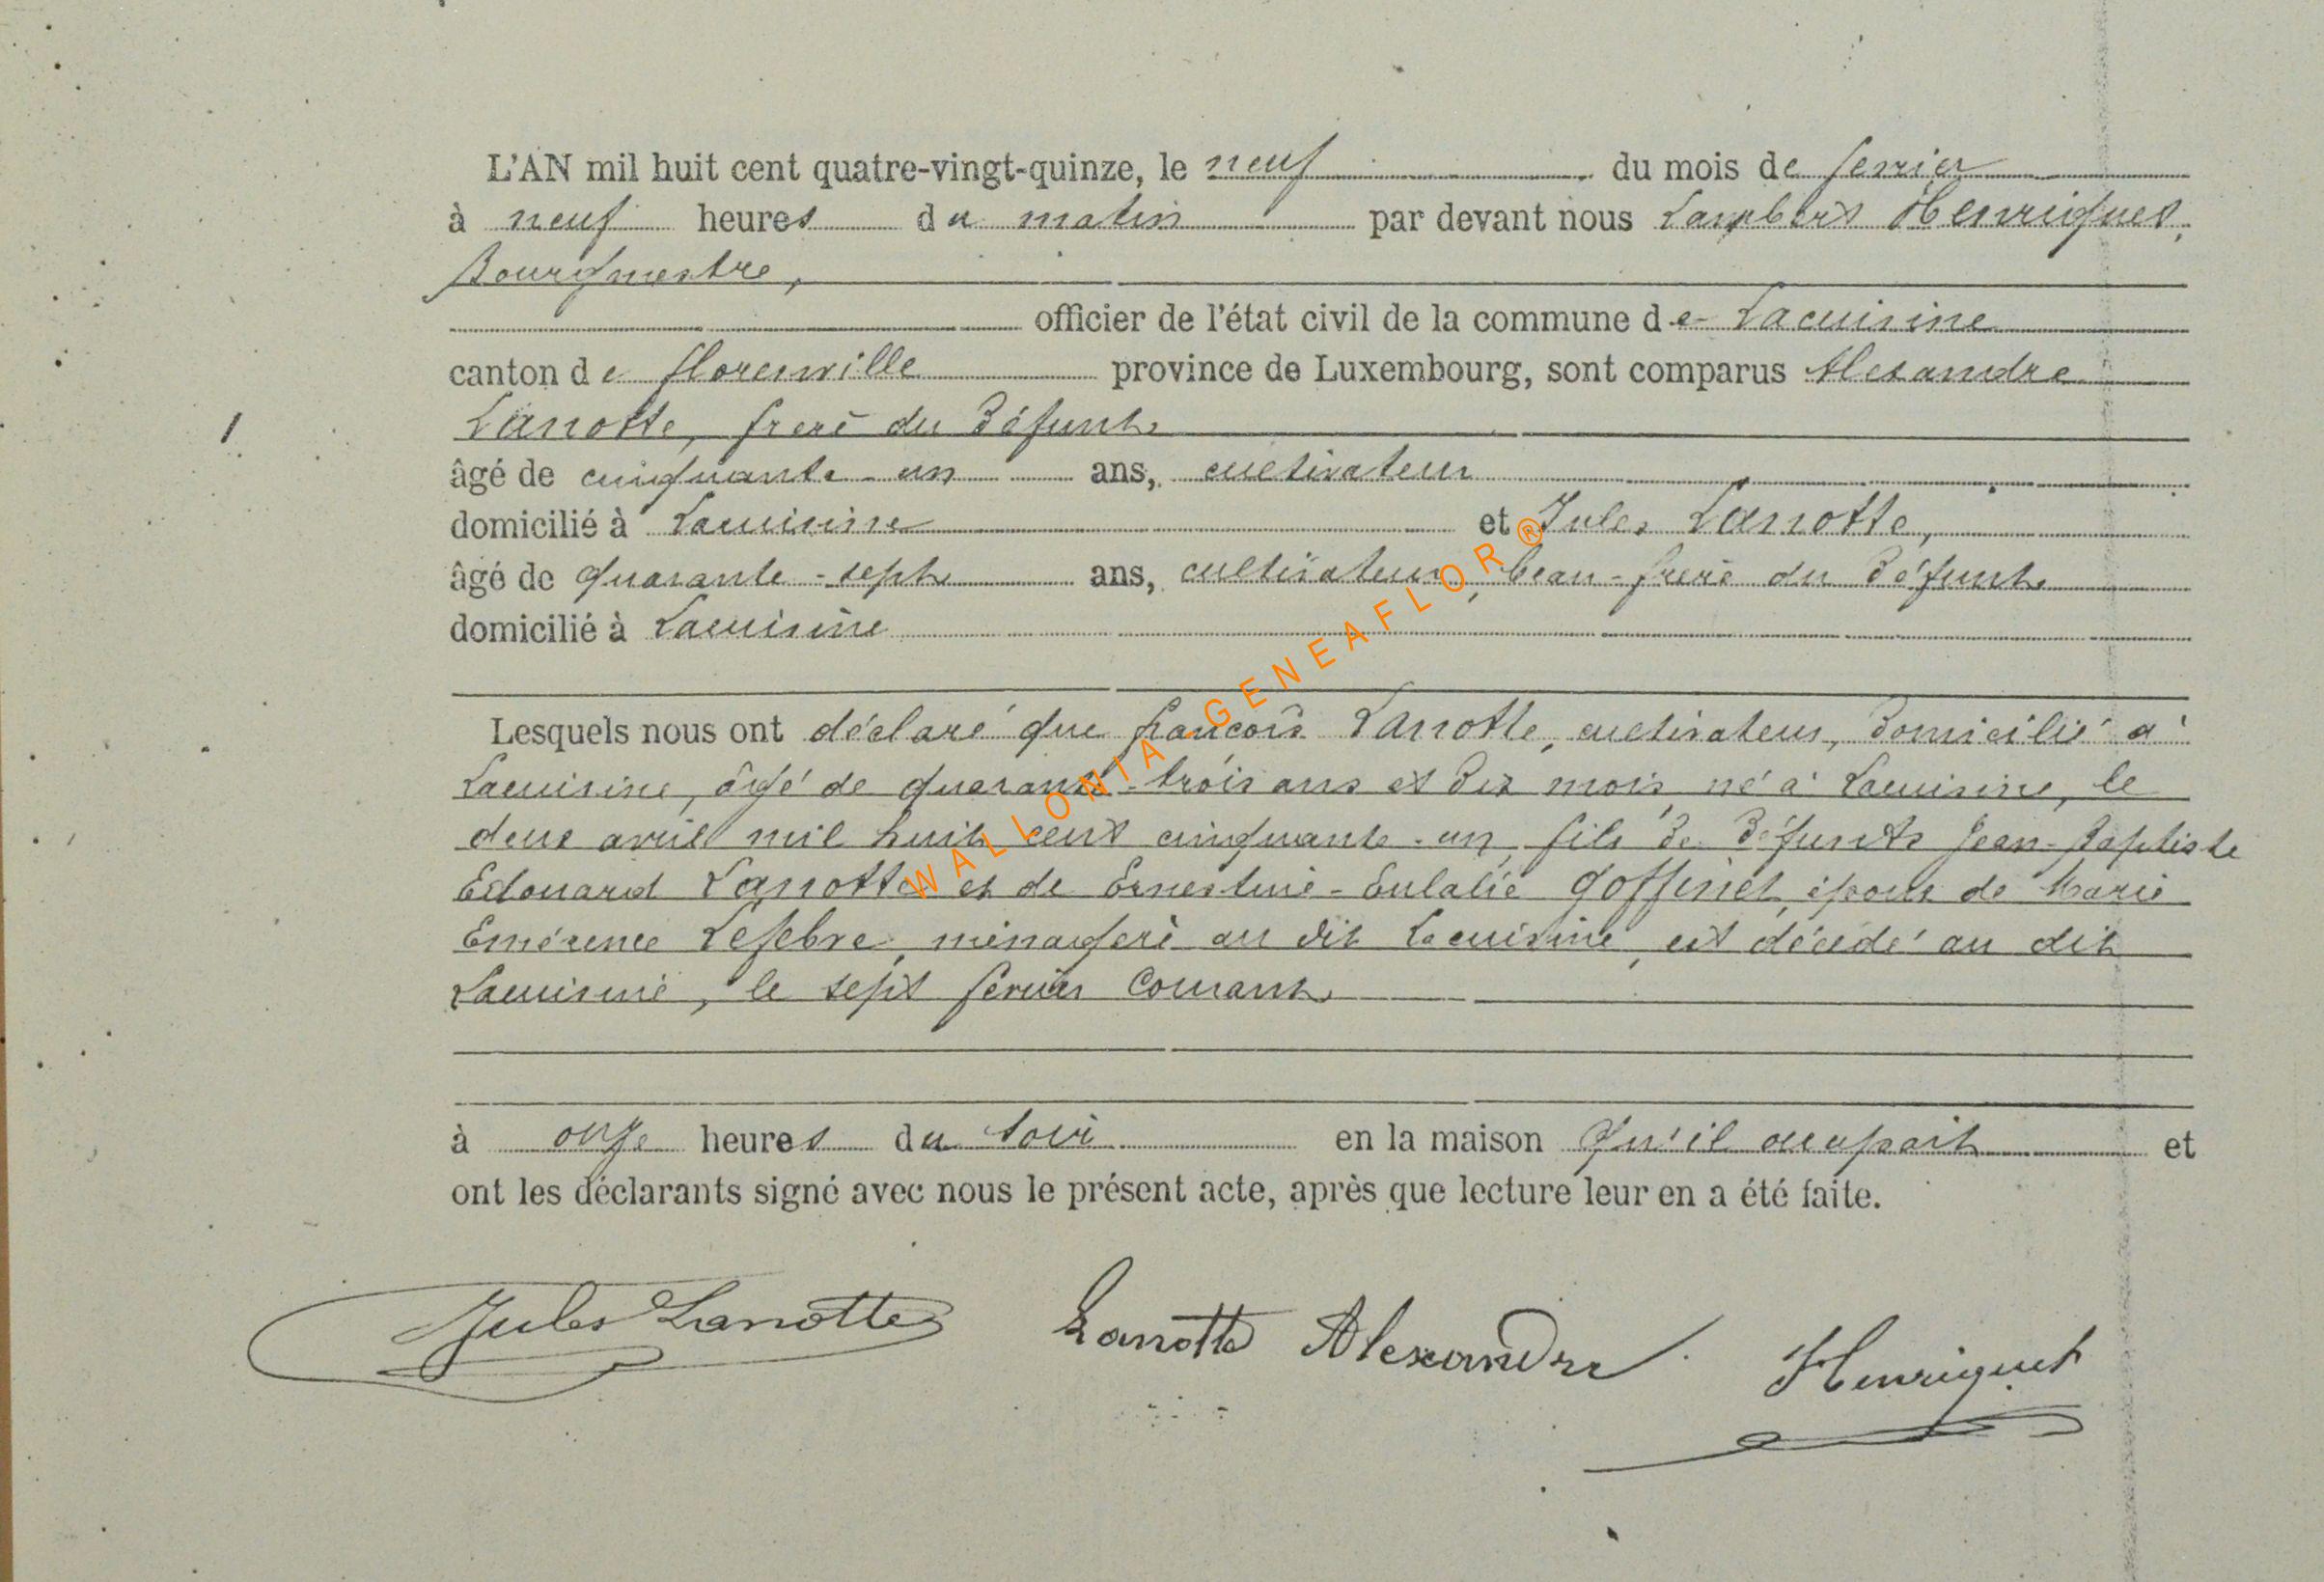 L'AN mil huit cent quatre-vingt-quinze, le neuf du mois de fevrier
à neuf heures du matin par devant nous Lambert Henriquet,
Bourgmestre,
officier de l'état civil de la commune de Lacuisine
canton de florenville province de Luxembourg, sont comparus Alexandre
Lanotte, frère du défunt
âgé de cinquante-un ans, cultivateur
domicilié à Lacuisine et Jules Lanotte,
âgé de quarante-sept ans, cultivateur, beau-frère du défunt
domicilié à Lacuisine
Lesquels nous ont déclaré que françois Lanotte, cultivateur, domicilié à
Lacuisine, âgé de quarante-trois ans et dix mois, né à Lacuisine, le
deux avril mil huit cent cinquante-un, fils de défunts Jean-Baptiste
Edouard Lanotte et de Ernestine-Eulalie Goffinet, époux de Marie
Emérence Lefebvre, ménagère au dit Lacuisine, est décédé au dit
Lacuisine, le sept fevrier Courant
à onze heures du soir en la maison qu'il occupait et
ont les déclarants signé avec nous le présent acte, après que lecture leur en a été faite.
Jules Lanotte Lanotte Alexandre Henriquet
WALLONIA - GENEAFLOR®